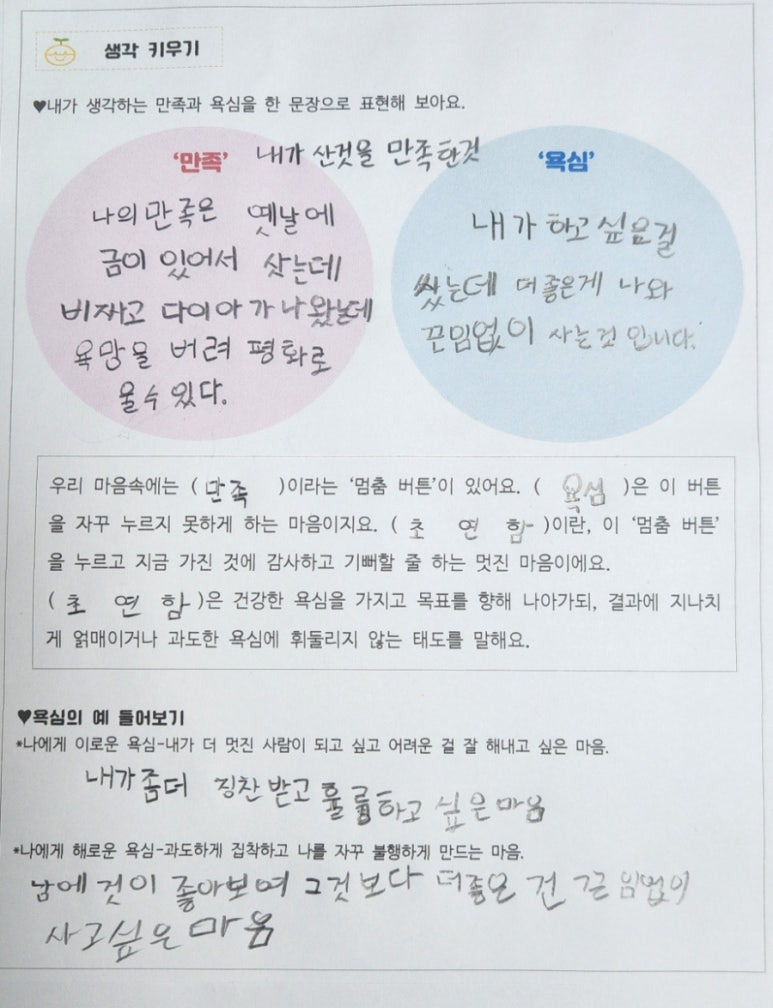 생각 키우기
♥내가 생각하는 만족과 욕심을 한 문장으로 표현해 보아요.
'만족' 내가 산것을 만족한것
나의 만족은 옛날에
금이 있어서 삿는데
비자고 다이아가 나왔는데
욕망을 버려 평화로
울수 있다.
'욕심'
내가 하고 싶은걸
쌌는데 더 좋은게 나와
끈임없이 사는것 입니다.
우리 마음속에는 ( 만족 )이라는 '멈춤 버튼'이 있어요. ( 욕심 )은 이 버튼
을 자꾸 누르지 못하게 하는 마음이지요. ( 초 연 함 )이란, 이 '멈춤 버튼'
을 누르고 지금 가진 것에 감사하고 기뻐할 줄 하는 멋진 마음이에요.
( 초 연 함 )은 건강한 욕심을 가지고 목표를 향해 나아가되, 결과에 지나치
게 얽매이거나 과도한 욕심에 휘둘리지 않는 태도를 말해요.
♥욕심의 예 들어보기
*나에게 이로운 욕심-내가 더 멋진 사람이 되고 싶고 어려운 걸 잘 해내고 싶은 마음.
내가 좀더 징찬 받고 훌륭하고 싶은 마음
*나에게 해로운 욕심-과도하게 집착하고 나를 자꾸 불행하게 만드는 마음.
남에 것이 좋아보여 그것보다 더좋은 건 끈임없이
사고싶은 마음